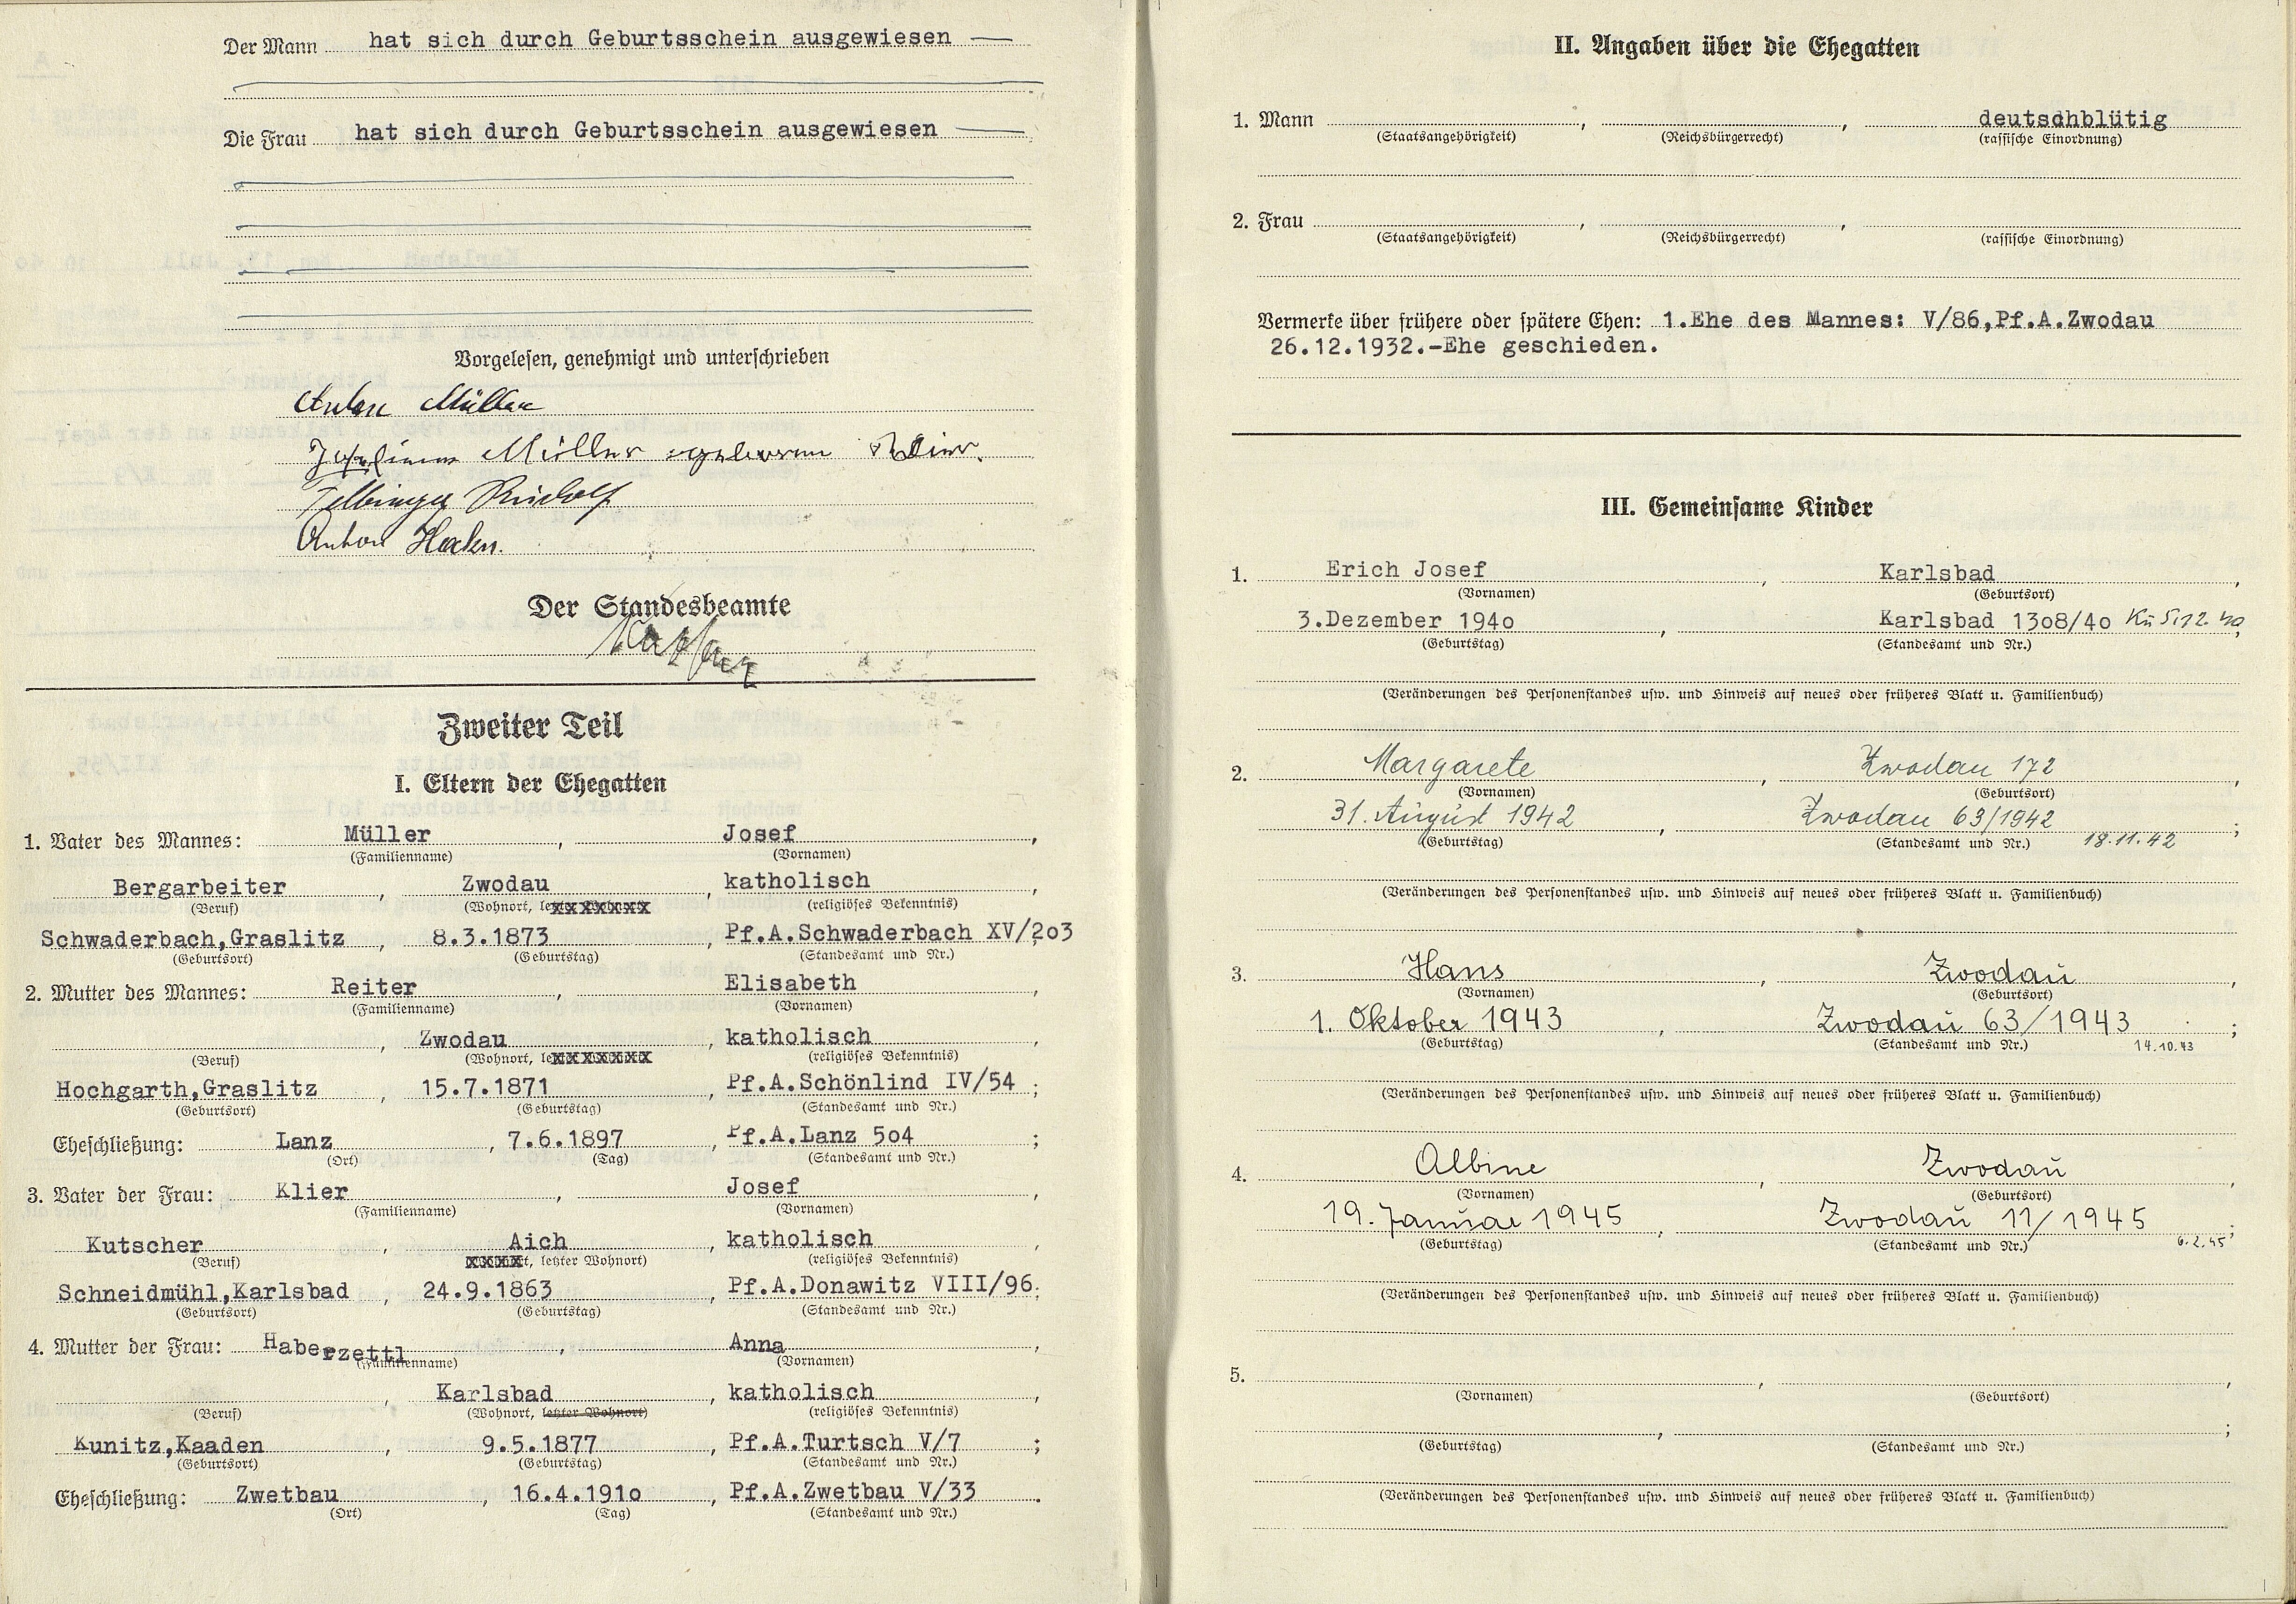 Der Mann hat sich durch Geburtsschein ausgewiesen —
Die Frau hat sich durch Geburtsschein ausgewiesen —
Vorgelesen, genehmigt und unterschrieben
Anton Müller
Müller geborene
Rudolf
Anton Hahn.
Der Standesbeamte
Zweiter Teil
I. Eltern der Ehegatten
1. Vater des Mannes: Müller, Josef,
(Familienname) (Vornamen)
Bergarbeiter, Zwodau, katholisch,
(Beruf) (Wohnort, (religiöses Bekenntnis)
Schwaderbach,Graslitz, 8.3.1873, Pf.A.Schwaderbach XV/2o3
(Geburtsort) (Geburtstag) (Standesamt und Nr.)
2. Mutter des Mannes: Reiter, Elisabeth,
(Familienname) (Vornamen)
, Zwodau, katholisch,
(Beruf) (Wohnort, (religiöses Bekenntnis)
Hochgarth,Graslitz, 15.7.1871, Pf.A.Schönlind IV/54;
(Geburtsort) (Geburtstag) (Standesamt und Nr.)
Eheschließung: Lanz, 7.6.1897, Pf.A.Lanz 5o4;
(Ort) (Tag) (Standesamt und Nr.)
3. Vater der Frau: Klier, Josef,
(Familienname) (Vornamen)
Kutscher, Aich, katholisch,
(Beruf) xxxxt, letzter Wohnort) (religiöses Bekenntnis)
Schneidmühl,Karlsbad, 24.9.1863, Pf.A.Donawitz VIII/96;
(Geburtsort) (Geburtstag) (Standesamt und Nr.)
4. Mutter der Frau: Haberzettl, Anna,
(Familienname) (Vornamen)
, Karlsbad, katholisch,
(Beruf) (Wohnort, letzter Wohnort) (religiöses Bekenntnis)
Kunitz,Kaaden, 9.5.1877, Pf.A.Turtsch V/7;
(Geburtsort) (Geburtstag) (Standesamt und Nr.)
Eheschließung: Zwetbau, 16.4.191o, Pf.A.Zwetbau V/33.
(Ort) (Tag) (Standesamt und Nr.)
II. Angaben über die Ehegatten
1. Mann , , deutschblütig
(Staatsangehörigkeit) (Reichsbürgerrecht) (rassische Einordnung)
2. Frau , ,
(Staatsangehörigkeit) (Reichsbürgerrecht) (rassische Einordnung)
Vermerke über frühere oder spätere Ehen: 1.Ehe des Mannes: V/86,Pf.A.Zwodau
26.12.1932.-Ehe geschieden.
III. Gemeinsame Kinder
1. Erich Josef, Karlsbad,
(Vornamen) (Geburtsort)
3.Dezember 194o, Karlsbad 13o8/4o Kü 5.12.40;
(Geburtstag) (Standesamt und Nr.)
(Veränderungen des Personenstandes usw. und Hinweis auf neues oder früheres Blatt u. Familienbuch)
2. Margarete, Zwodau 172,
(Vornamen) (Geburtsort)
31. August 1942, Zwodau 63/1942;
(Geburtstag) (Standesamt und Nr.) 18.11.42
(Veränderungen des Personenstandes usw. und Hinweis auf neues oder früheres Blatt u. Familienbuch)
3. Hans, Zwodau,
(Vornamen) (Geburtsort)
1. Oktober 1943, Zwodau 63/1943;
(Geburtstag) (Standesamt und Nr.) 14.10.43
(Veränderungen des Personenstandes usw. und Hinweis auf neues oder früheres Blatt u. Familienbuch)
4. Albine, Zwodau,
(Vornamen) (Geburtsort)
19. Januar 1945, Zwodau 11/1945;
(Geburtstag) (Standesamt und Nr.) 6.2.45
(Veränderungen des Personenstandes usw. und Hinweis auf neues oder früheres Blatt u. Familienbuch)
5. , ,
(Vornamen) (Geburtsort)
, ;
(Geburtstag) (Standesamt und Nr.)
(Veränderungen des Personenstandes usw. und Hinweis auf neues oder früheres Blatt u. Familienbuch)